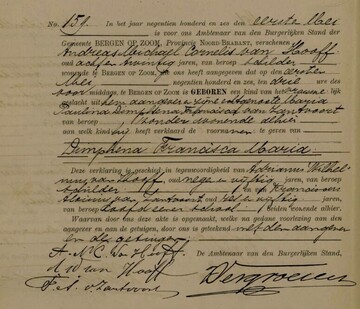 No. 159. In het jaar negentien honderd en zes den eerste Mei
is voor ons Ambtenaar van den Burgerlijken Stand der
Gemeente BERGEN OP ZOOM, Provincie NOORD-BRABANT, verschenen
Andreas Michael Cornelis van Hooff
oud achtentwintig jaren, van beroep schilder
wonende te BERGEN OP ZOOM, en heeft aangegeven dat op den eerste
Mei, des ten drie ure des
voor middags, te BERGEN OP ZOOM is GEBOREN een kind van het vrouwelijk
geslacht uit hem aangever en zijne echtgenoote Maria
Paulina Dimphena van Zantvoort
van beroep zonder wonende alhier
aan welk kind hij heeft verklaard de voornamen te geven van
Dimphena Francisca Maria.
Deze verklaring is geschied in tegenwoordigheid van Adrianus Wilhel-
mus van Hooff oud negen en vijftig jaren, van beroep
schilder en van Franciscus
van Zantvoort oud vijftig jaren,
van beroep beiden wonende alhier.
Waarvan door ons deze akte is opgemaakt, welke na gedane voorlezing aan den
aangever en aan de getuigen, door ons is geteekend met den aangever
en de getuigen.
A. M. C. van Hooff
A W van Hooff
F. A. v Zantvoort
De Ambtenaar van den Burgerlijken Stand,